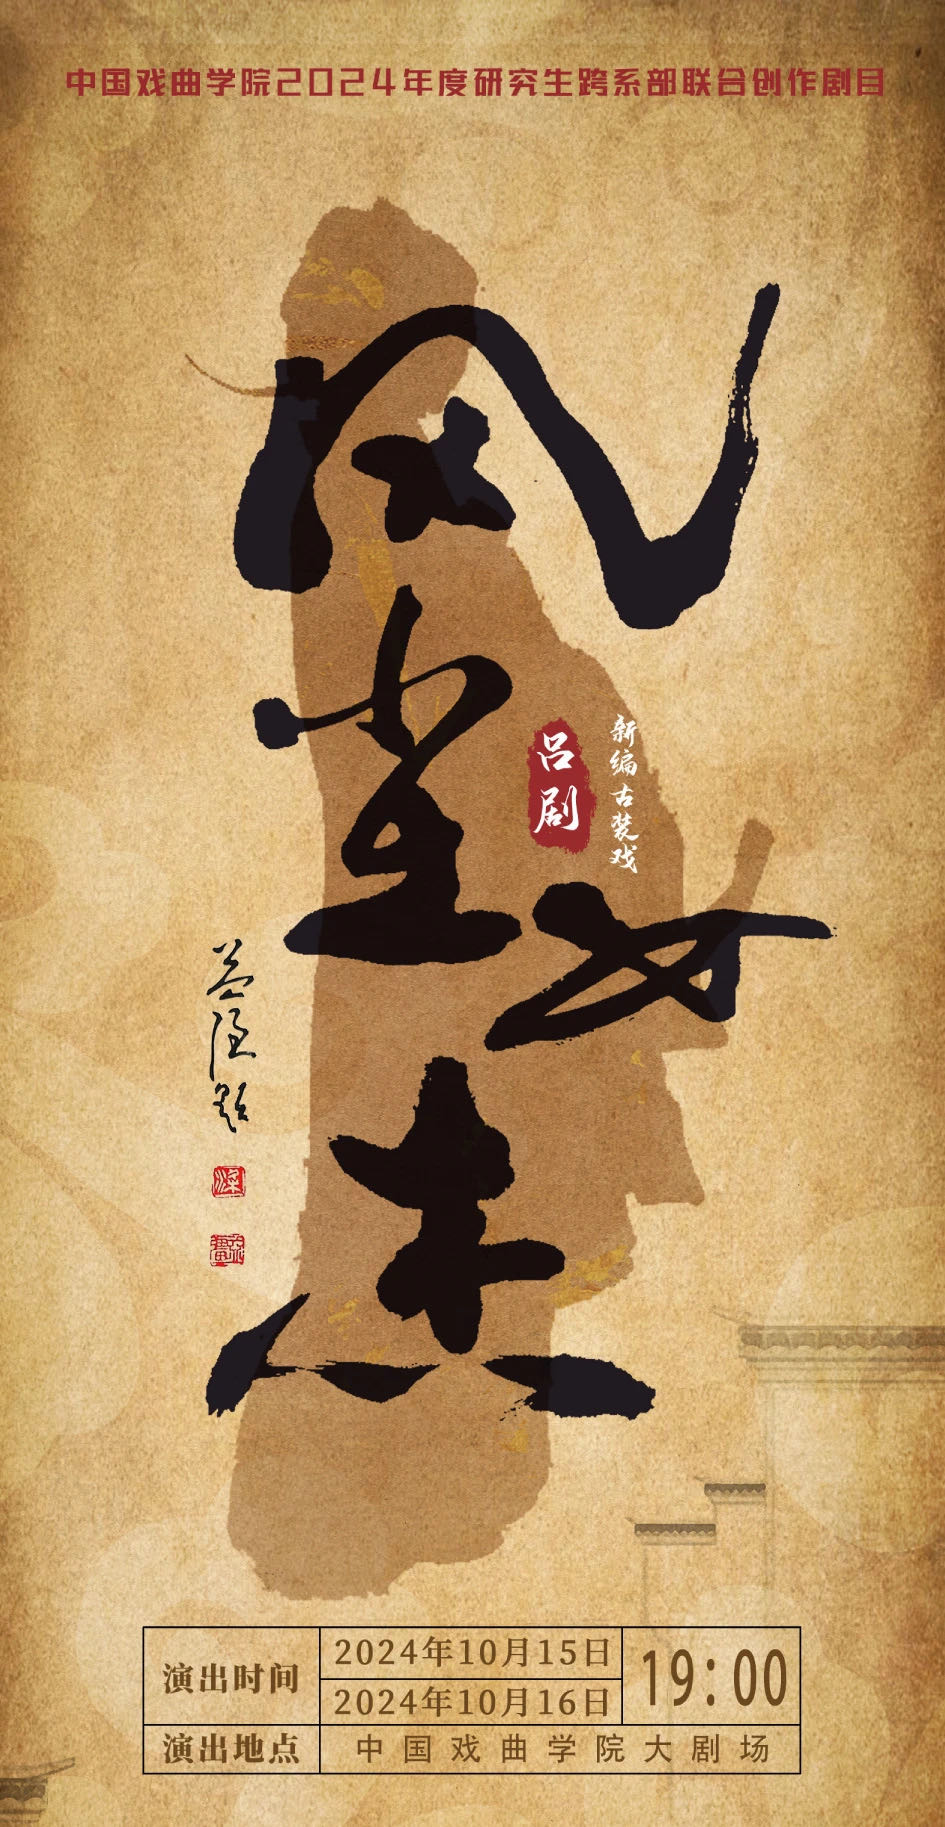 中国戏曲学院2024年度研究生跨系部联合创作剧目
风尘女杰
新编古装戏
吕剧
演出时间
2024年10月15日
2024年10月16日
19:00
演出地点
中国戏曲学院大剧场